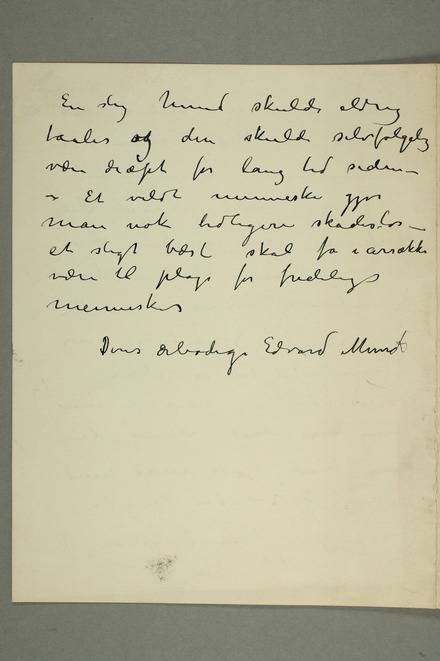 En slig hund skulde aldrig
taales og den skulde selvfølgelig
være dræpt for lang tid siden –
– Et vildt menneske gjør
man nok tidligere uskadeligt –
et sligt bæst skal få i årrække
være til plage for fredelige
mennesker
Deres ærbødige Edvard Munch